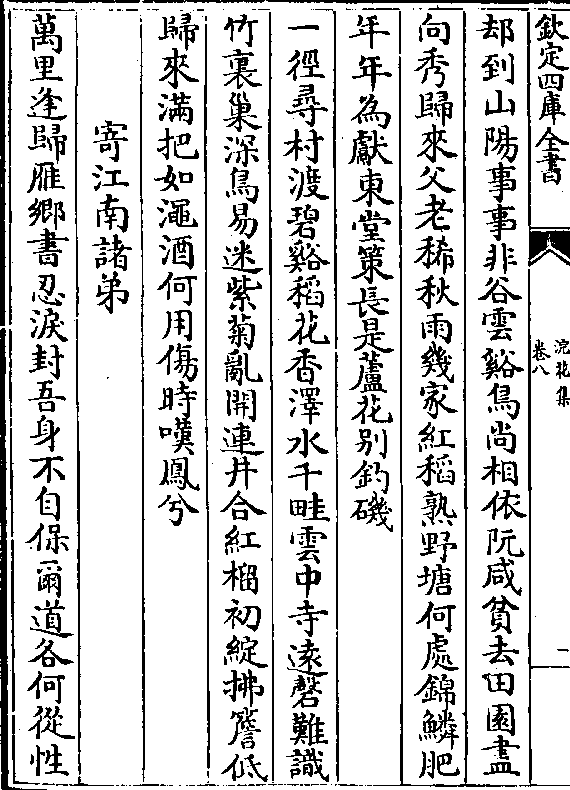 欽定四庫全書
浣花集
卷八
二
却到山陽事事非谷雲谿鳥尚相依阮咸貧去田園盡
向秀歸來父老稀秋雨幾家紅稻熟野塘何處錦鱗肥
年年為獻東堂策長是蘆花别釣磯
一徑尋村渡碧谿稻花香澤水千畦雲中寺遠磬難識
竹裏巢深鳥易迷紫菊亂開連井合紅榴初綻拂簷低
歸來滿把如澠酒何用傷時嘆鳳兮
寄江南諸弟
萬里逢歸雁鄉書忍淚封吾身不自保爾道各何從性